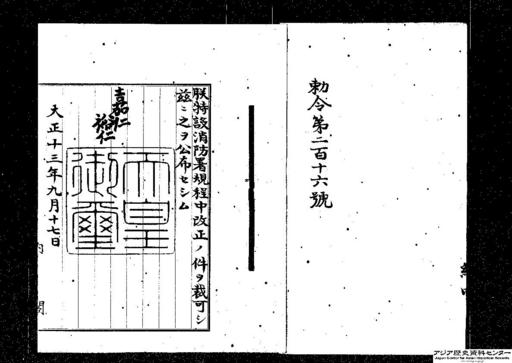 勅令第二百十六號
朕特設消防署規程中改正ノ件ヲ裁可シ
茲ニ之ヲ公布セシム
嘉仁
裕仁
天皇御璽
大正十三年九月十七日
内閣
アジア歴史資料センター
Japan Center for Asian Historical Records